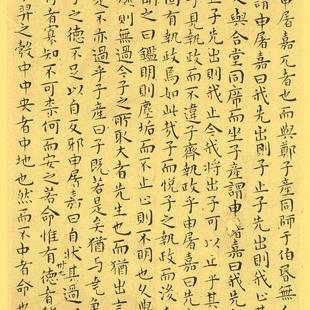 申屠嘉兀者也而與鄭子產同師于伯昏无人
謂申屠嘉曰我先出則子止子先出則我止其
又與合堂同席而坐子產謂申屠嘉曰我先
子先出則我止今我將出子可以止乎其
子見執政而不違子齊執政乎申屠嘉曰先
固有執政焉如此哉子而悅子之執政而後
之曰鑑明則塵垢而不止止則不明也久與
則無過今子之所取大者先生也而猶出言
是不亦過乎子產曰子既若是矣猶與堯爭
子之德不足以自反邪申屠嘉曰自狀其過
存者寡知不可柰何而安之若命惟有德者
羿之彀中中央者中地也然而不中者命也